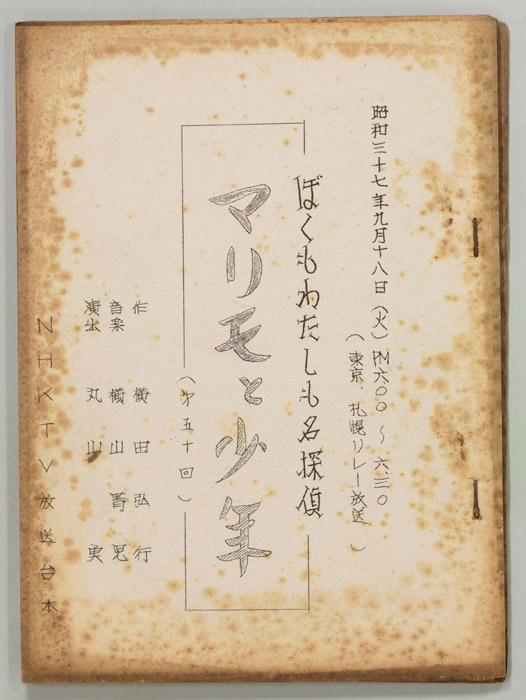 昭和三十七年九月十八日(火)PM六・〇〇〜六・三〇
(東京、札幌リレー放送)
ぼくもわたしも名探偵
マリモと少年
(才五十回)
作 横田弘行
音楽 横山菁児
演出 丸山 実
NHKTV放送台本